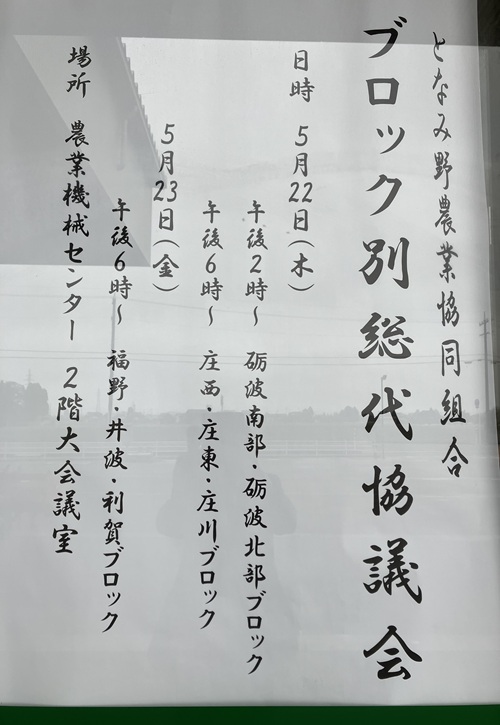 となみ野農業協同組合
ブロック別総代協議会
日時 5月22日(木)
午後2時～ 砺波南部・砺波北部ブロック
午後6時～ 庄西・庄東・庄川ブロック
5月23日(金)
午後6時～ 福野・井波・利賀ブロック
場所 農業機械センター 2階大会議室